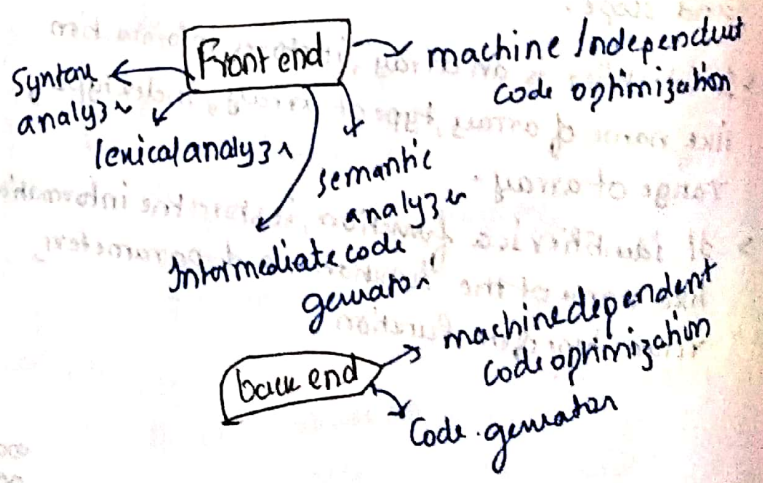 Front end
machine Independent
code optimization
Syntax
analyzer
lexical analyzer
semantic
analyzer
Intermediate code
generator
back end
machine dependent
code optimization
Code generator